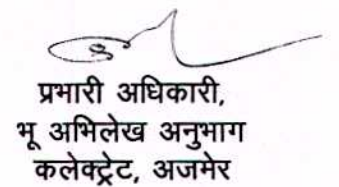 प्रभारी अधिकारी,
भू अभिलेख अनुभाग
कलेक्ट्रेट, अजमेर